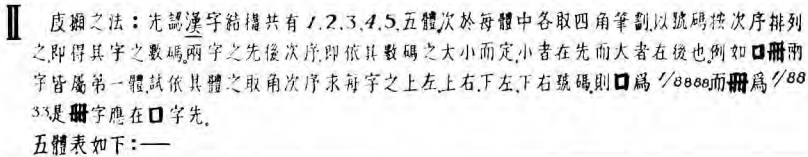 II 皮𢷤之法：先認漢字結構共有1.2.3.4.5.五體次於每體中各取四角筆劃.以號碼按次序排列
之.即得其字之數碼.兩字之先後次序.即依其數碼之大小而定.小者在先而大者在後也.例如口冊兩
字皆屬第一體.試依其體之取角次序求每字之上左.上右.下左.下右號碼.則口爲1/8888而冊爲1/88
33.是冊字應在口字先.
五體表如下：—